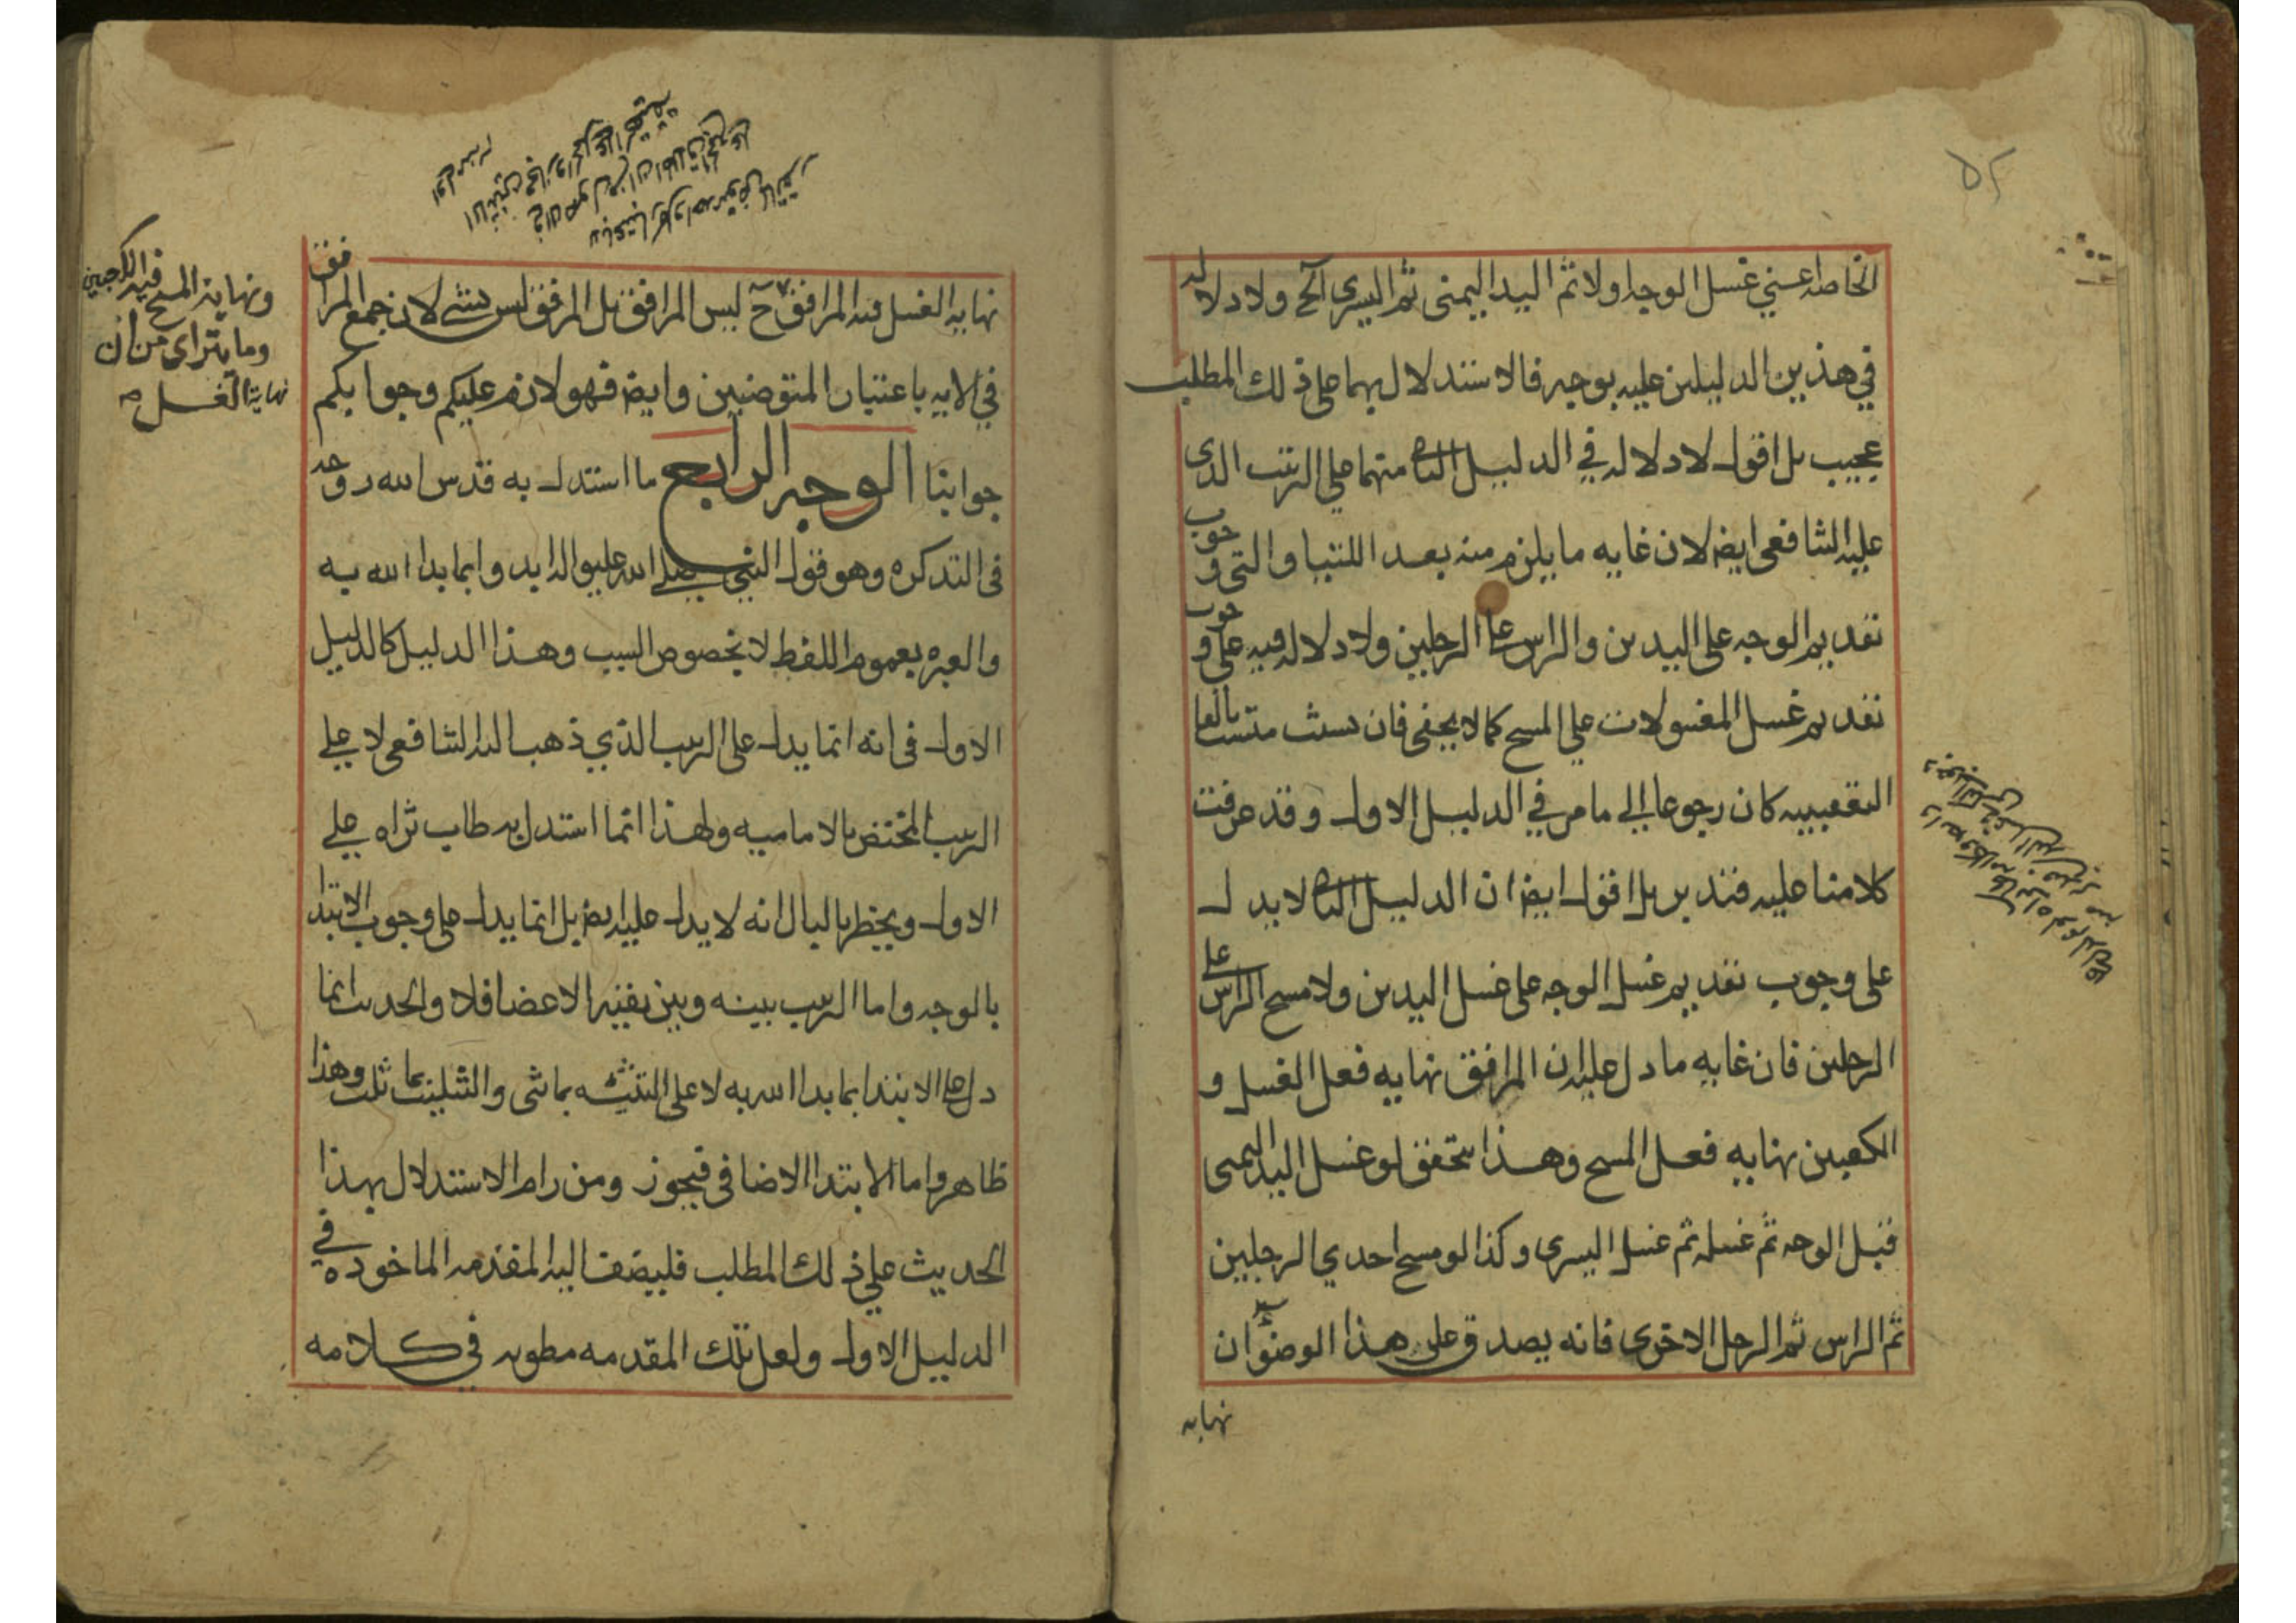 ٥٢
الخاصه اعني غسل الوجه اولا ثم اليد اليمنى ثم اليسرى آلخ ولا دلاله
في هذين الدليلين عليه بوجه فالاستدلال بهما على ذلك المطلب
عجيب بل اقول لا دلاله في الدليل الثاني منهما على الترتيب الذي
عليه الشافعي ايض لان غايه ما يلزم منه بعد اللتيا والتي وجوب
تقديم الوجه على اليدين والراس على الرجلين ولا دلاله فيه على وجوب
تقديم غسل المغسولات على المسح كما لا يخفى فان تشبث متشبث بالفا
التعقيبيه كان رجوعا الى ما مر في الدليل الاول وقد عرفت
كلامنا عليه فتدبر بل اقول ايض ان الدليل الثاني لا يدل
على وجوب تقديم غسل الوجه على غسل اليدين ولا مسح الراس على
الرجلين فان غايه ما دل عليه ان المرافق نهايه فعل الغسل و
الكعبين نهايه فعل المسح وهذا يتحقق لو غسل اليد اليمنى
قبل الوجه ثم غسله ثم غسل اليسرى وكذا لو مسح احدي الرجلين
ثم الراس ثم الرجل الاخرى فانه يصدق على هذا الوضوء ان
نهايه
نهايه الغسل فيه المرافق ح ليس المرافق بل المرفق ليس بشي لان جمع المرافق
ونهاية المسح فيه الكعبين
وما يتراى من ان
نهاية الغسل صح
في الايه باعتبار المتوضئين وايض فهو لازم عليكم وجوابكم
جوابنا الوجه الرابع ما استدل به قدس الله روحه
في التذكره وهو قول النبي صلى الله عليه واله ابدوا بما بدا الله به
والعبره بعموم اللفظ لا بخصوص السبب وهذا الدليل كالدليل
الاول في انه انما يدل على الترتيب الذي ذهب اليه الشافعي لا على
الترتيب المختص بالاماميه ولهذا انما استدل به طاب ثراه على
الاول ويخطر بالبال انه لا يدل عليه ايض بل انما يدل على وجوب الابتدا
بالوجه واما الترتيب بينه وبين بقيه الاعضا فلا والحديث انما
دل على الابتدا بما بدا الله به لا على التثنيه بما ثنى والتثليث بما ثلث وهذا
ظاهر واما الابتدا الاضافي فيجوز ومن رام الاستدلال بهذا
الحديث على ذلك المطلب فليضف اليه المقدمه الماخوده في
الدليل الاول ولعل تلك المقدمه مطويه في كلامه